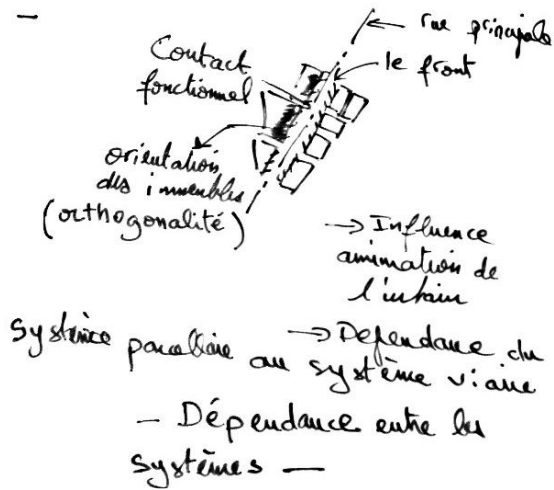 rue principale
le front
Contact
fonctionnel
orientation
des immeubles
(orthogonalité)
→ Influence
animation de
l'urbain
Système parcellaire → Dépendance du
au système viaire
— Dépendance entre les
systèmes —